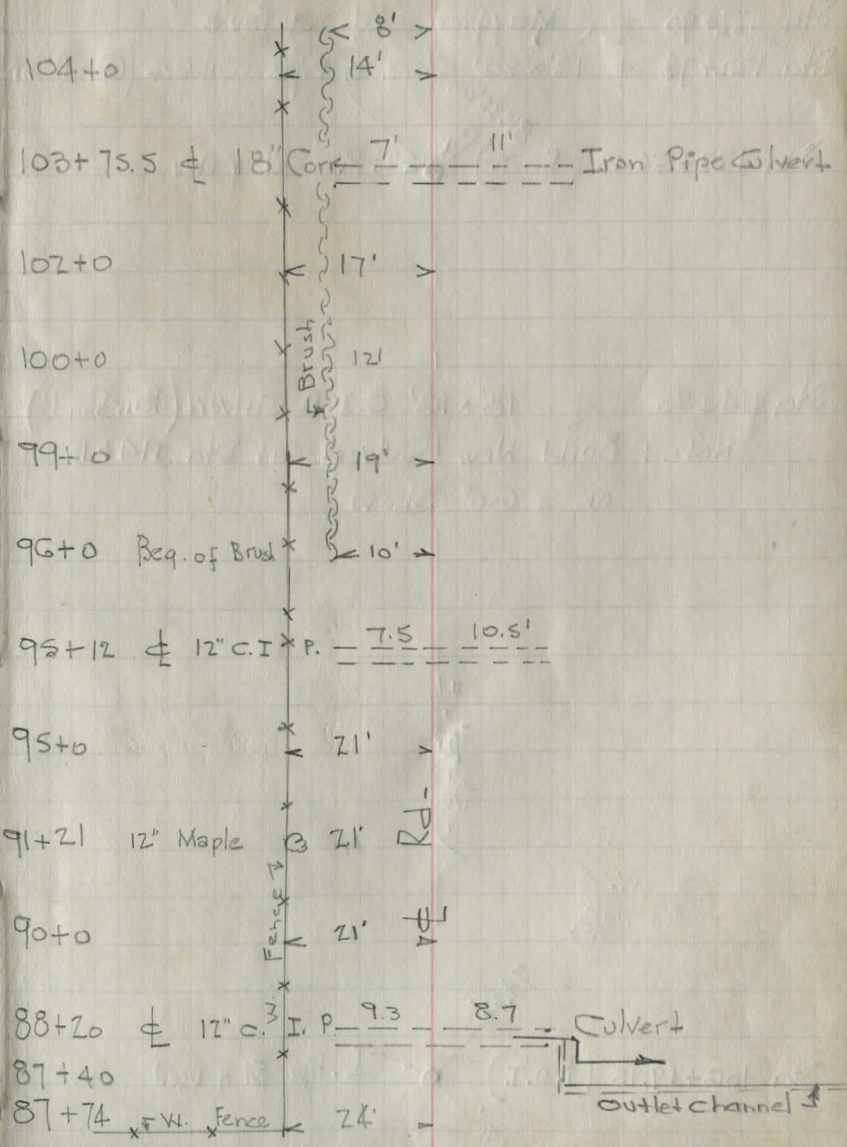 8'
104+0 14'
103+75.5 ℄ 18" Corr 7' 11' Iron Pipe Culvert
102+0 17'
Brush
100+0 12'
99+0 19'
96+0 Beg. of Brush 10'
95+12 ℄ 12" C.I.P. 7.5 10.5'
95+0 21'
91+21 12" Maple 21' Rd
Fence
90+0 21'
88+20 ℄ 12" C. I. P. 9.3 8.7 Culvert
87+40
Outlet Channel
87+74 W. Fence 24'